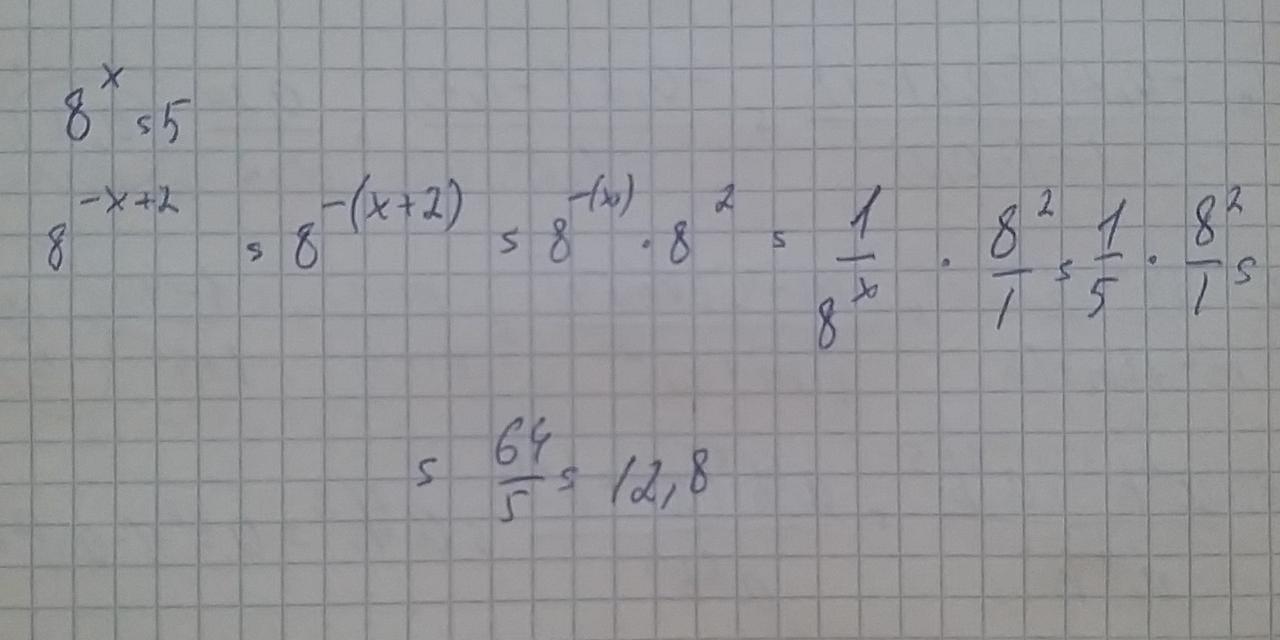 8^x = 5
8^{-x+2} = 8^{-(x+2)} = 8^{-(x)} · 8^2 = \frac{1}{8^x} · \frac{8^2}{1} = \frac{1}{5} · \frac{8^2}{1} =
= \frac{64}{5} = 12,8